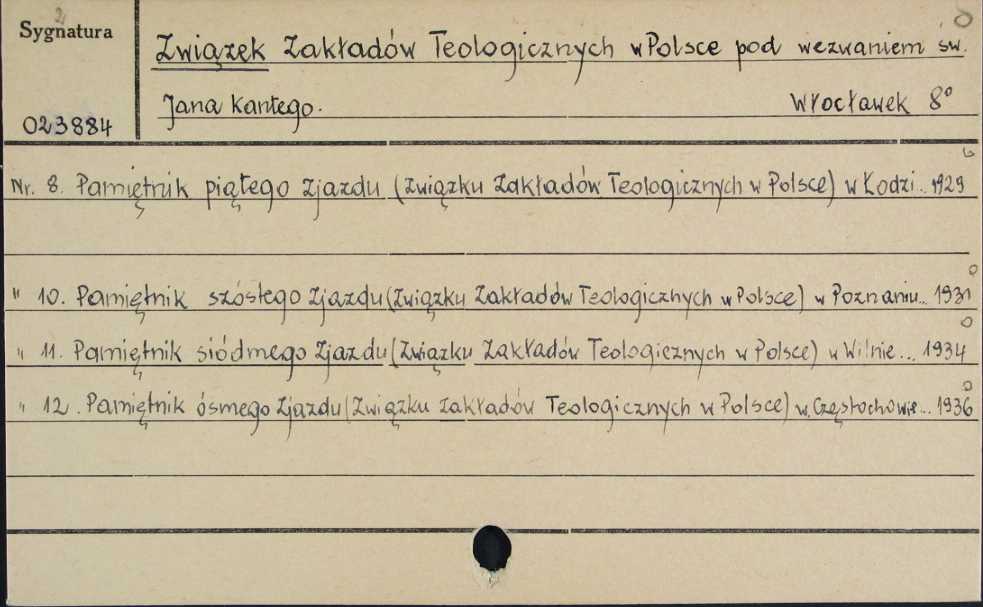 Sygnatura
023884
Związek Zakładów Teologicznych w Polsce pod wezwaniem św.
Jana Kantego. Włocławek 8°
Nr. 8. Pamiętnik piątego Zjazdu (Związku Zakładów Teologicznych w Polsce) w Łodzi.. 1929
" 10. Pamiętnik szóstego Zjazdu (Związku Zakładów Teologicznych w Polsce) w Poznaniu.. 1931
" 11. Pamiętnik siódmego Zjazdu (Związku Zakładów Teologicznych w Polsce) w Wilnie... 1934
" 12. Pamiętnik ósmego Zjazdu (Związku Zakładów Teologicznych w Polsce) w Częstochowie... 1936